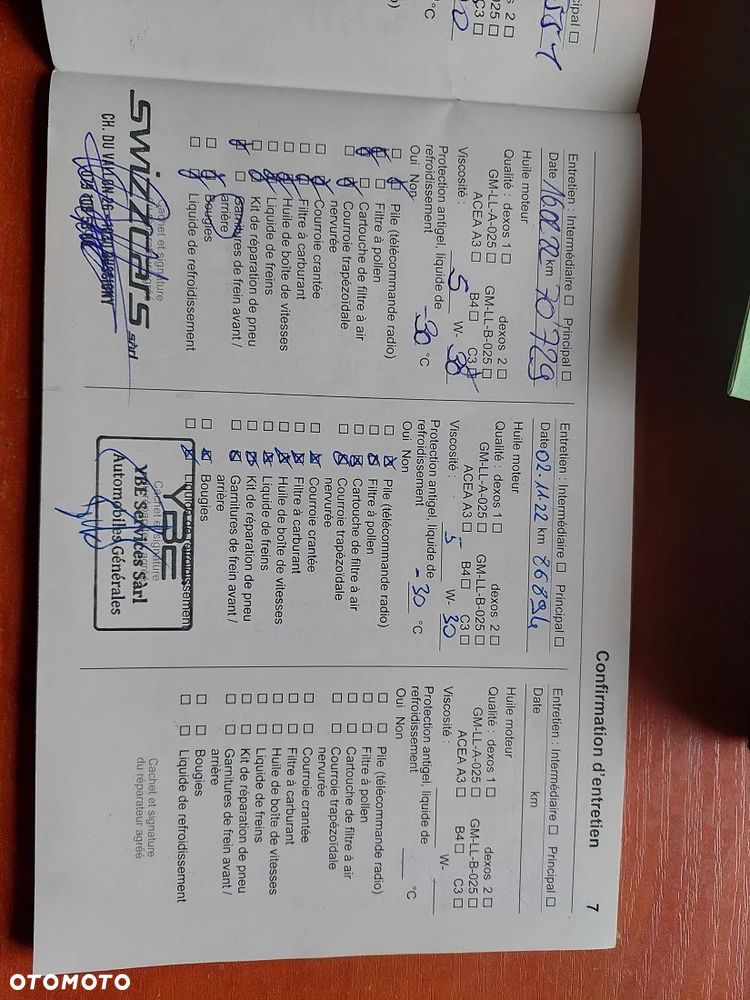 Confirmation d'entretien 7
Entretien : Intermédiaire ☐ Principal ☐
Date km 70'729
Huile moteur
Qualité : dexos 1 ☐ dexos 2 ☐
GM-LL-A-025 ☐ GM-LL-B-025 ☐
ACEA A3 ☐ B4 ☐ C3
Viscosité : 5 W- 30
Protection antigel, liquide de
refroidissement -30 °C
Oui Non
Pile (télécommande radio)
Filtre à pollen
Cartouche de filtre à air
Courroie trapézoïdale
nervurée
Courroie crantée
Filtre à carburant
Huile de boîte de vitesses
Liquide de freins
Kit de réparation de pneu
Garnitures de frein avant /
arrière
Bougies
Liquide de refroidissement
Cachet et signature
swizzcars sàrl
Entretien : Intermédiaire ☐ Principal ☐
Date 02.11.22 km 86894
Huile moteur
Qualité : dexos 1 ☐ dexos 2 ☐
GM-LL-A-025 ☐ GM-LL-B-025 ☐
ACEA A3 ☐ B4 ☐ C3 ☐
Viscosité : 5 W- 30
Protection antigel, liquide de
refroidissement -30 °C
Oui Non
Pile (télécommande radio)
Filtre à pollen
Cartouche de filtre à air
Courroie trapézoïdale
nervurée
Courroie crantée
Filtre à carburant
Huile de boîte de vitesses
Liquide de freins
Kit de réparation de pneu
Garnitures de frein avant /
arrière
Bougies
Liquide de refroidissement
Cachet et signature
YBE
YBE Services Sàrl
Automobiles Générales
Entretien : Intermédiaire ☐ Principal ☐
Date km
Huile moteur
Qualité : dexos 1 ☐ dexos 2 ☐
GM-LL-A-025 ☐ GM-LL-B-025 ☐
ACEA A3 ☐ B4 ☐ C3 ☐
Viscosité : W-
Protection antigel, liquide de
refroidissement °C
Oui Non
☐ ☐ Pile (télécommande radio)
☐ ☐ Filtre à pollen
☐ ☐ Cartouche de filtre à air
☐ ☐ Courroie trapézoïdale
nervurée
☐ ☐ Courroie crantée
☐ ☐ Filtre à carburant
☐ ☐ Huile de boîte de vitesses
☐ ☐ Liquide de freins
☐ ☐ Kit de réparation de pneu
☐ ☐ Garnitures de frein avant /
arrière
☐ ☐ Bougies
☐ ☐ Liquide de refroidissement
Cachet et signature
du réparateur agréé
OTOMOTO